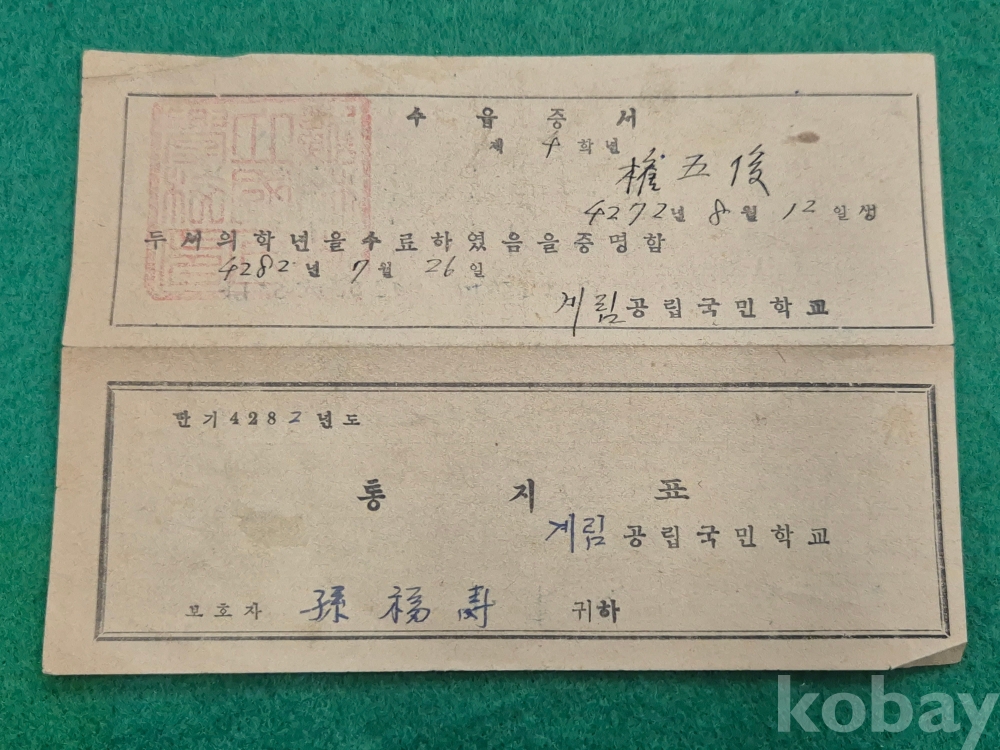 수 읍 증 서
제 4 학년
權五俊
4272년 8월 12일생
두서의학년을수료하였음을증명함
4282년 7월 26일
계림공립국민학교
단기4282년도
통 지 표
계림공립국민학교
보호자 孫福壽 귀하
kobay